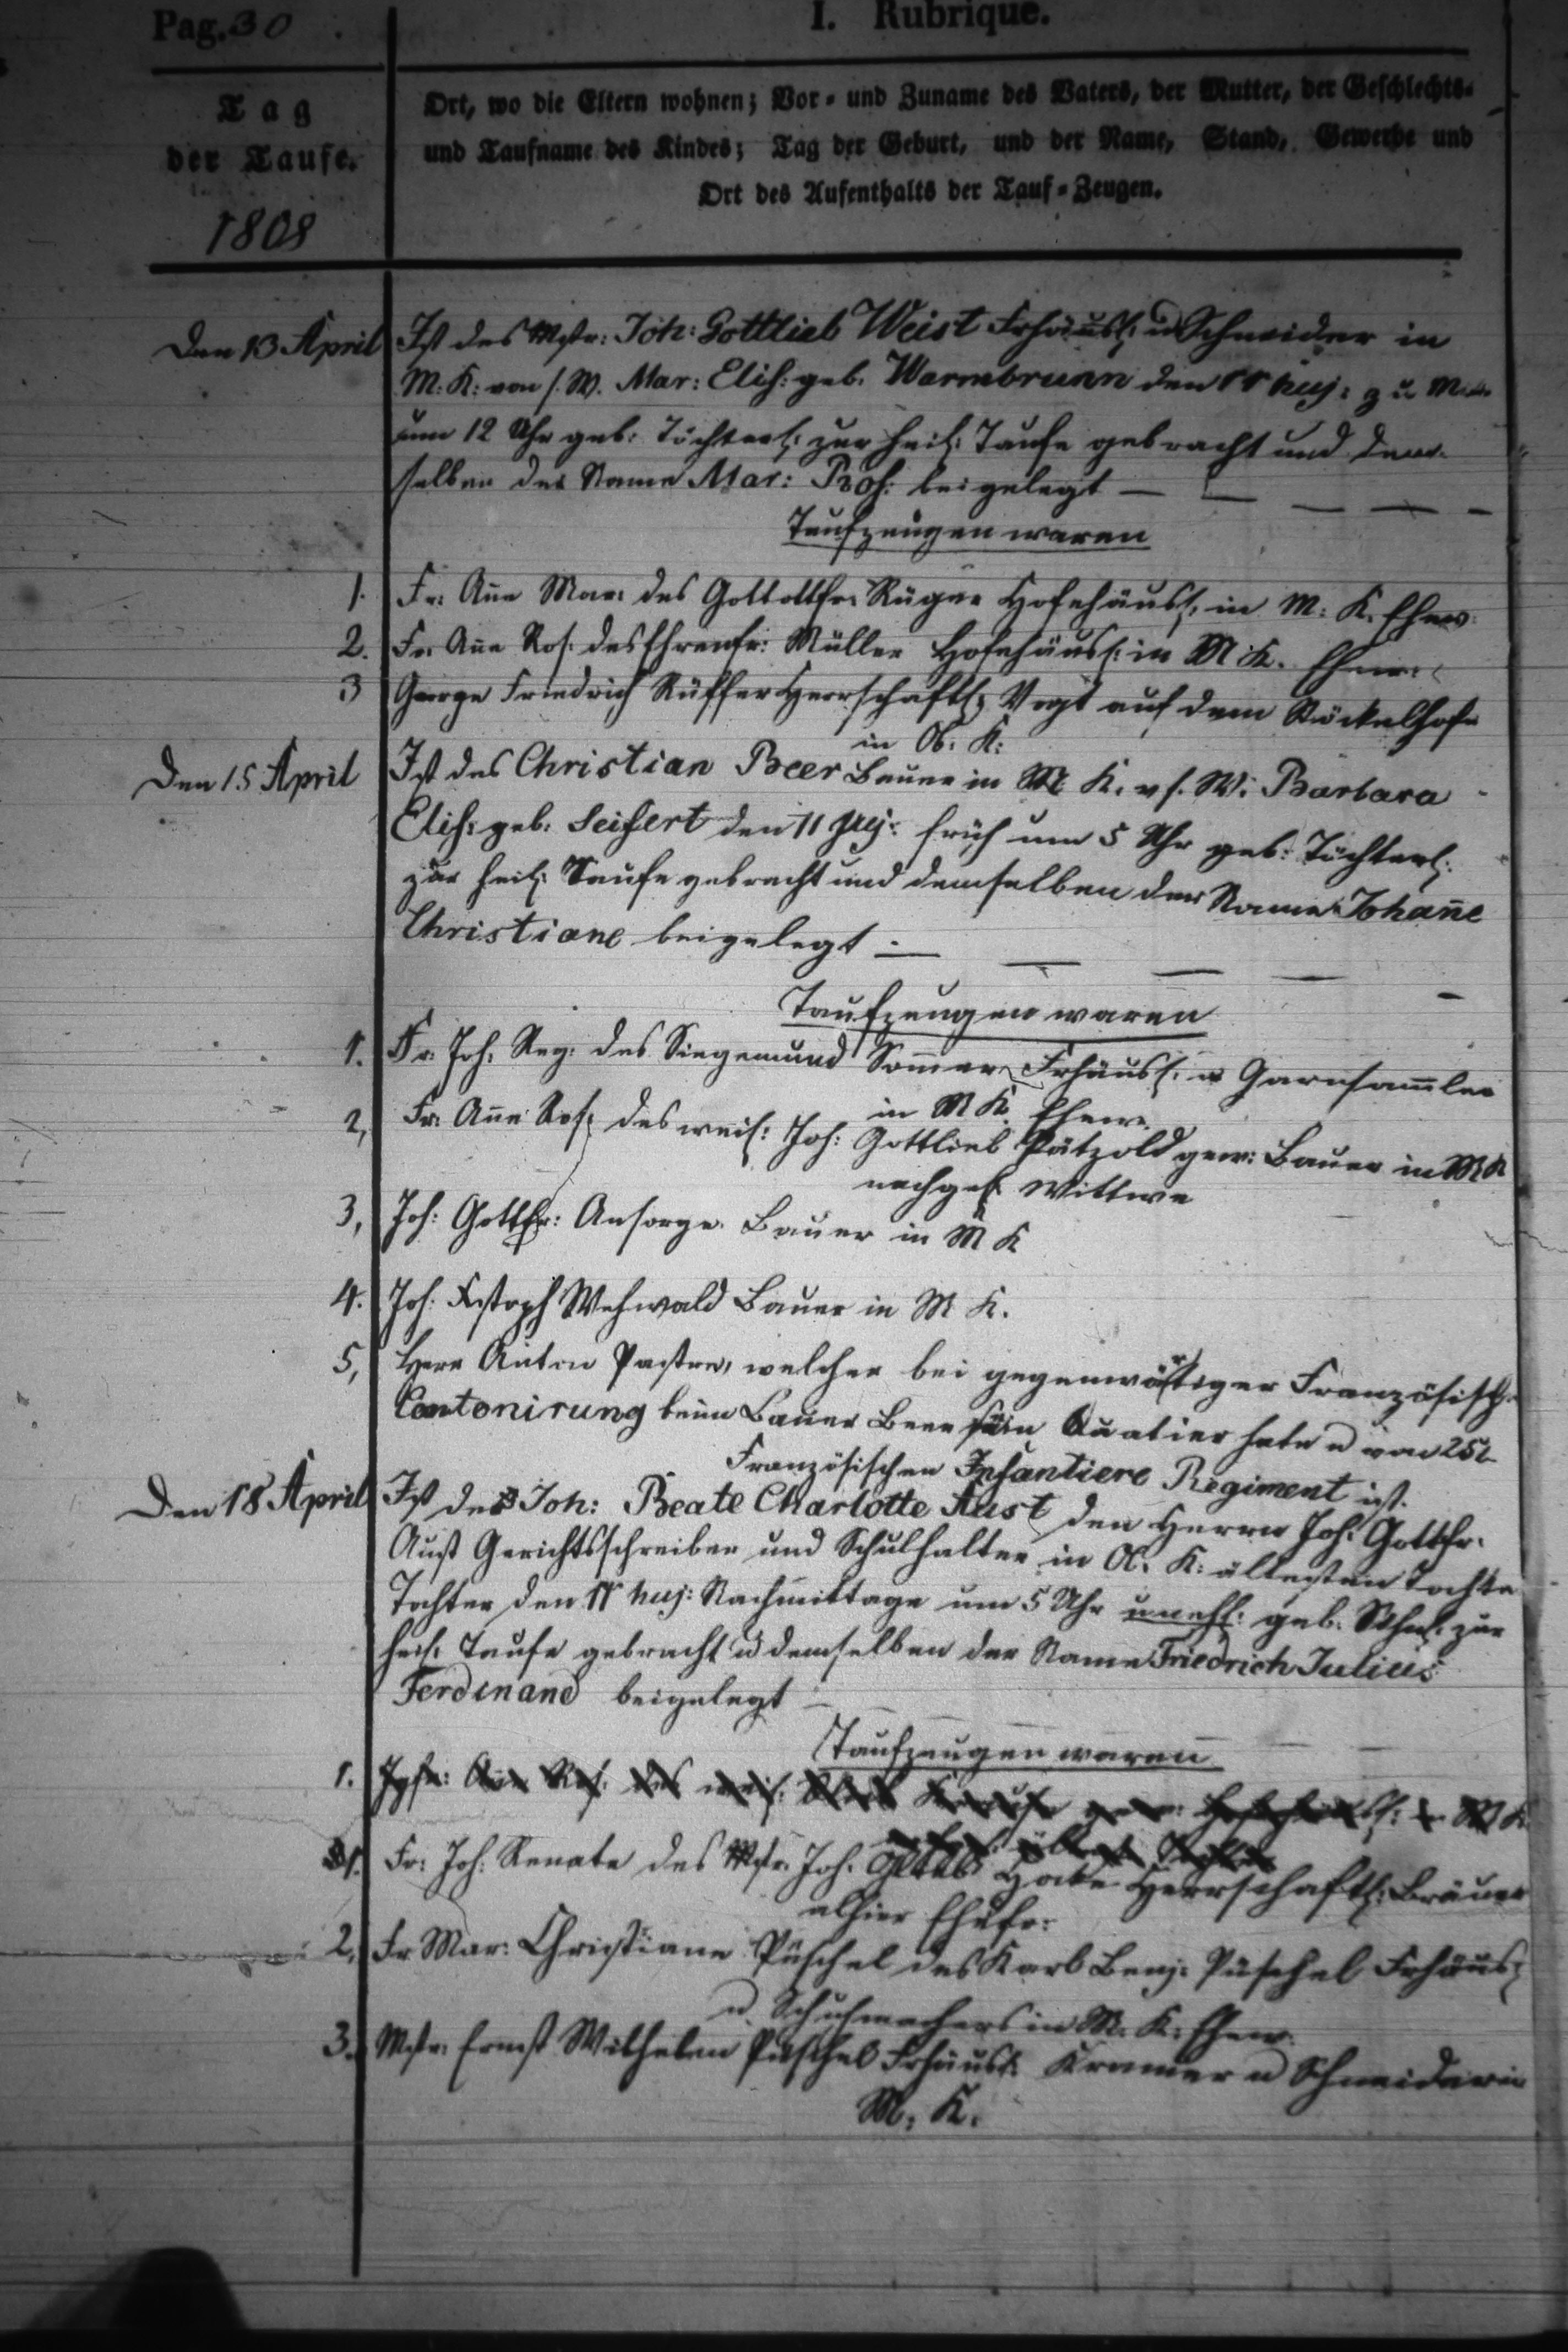 Pag. 30
I. Rubrique.
Tag
der Taufe.
1808
Ort, wo die Eltern wohnen; Vor- und Zuname des Vaters, der Mutter, der Geschlechts-
und Taufname des Kindes; Tag der Geburt, und der Name, Stand, Gewerbe und
Ort des Aufenthalts der Tauf-Zeugen.
Den 13 April Ist des Mstr: Joh: Gottlieb Weist Frhäusl: u Schneider in
M: K: von s. W. Mar: Elis: geb. Warmbrunn den 11 huj:
um 12 Uhr geb: Töchterl: zur heil: Taufe gebracht und dem-
selben der Name Mar: Ros: beigelegt —
Taufzeugen waren
1. Fr: Añe Mar: des Gottottfr: Rüger Hofehäusl: in M: K. Ehew:
2. Fr: Añe Ros: des Ehrenfr: Müller Hofehäusl: in M: K. Ehew:
3 George Friedrich Rüffer Herrschaftl: Vogt auf dem Stöckelhofe
in Ob: K:
Den 15 April Ist des Christian Beer Bauer in M K. v s. W: Barbara
Elis: geb: Seifert den 11 huj: früh um 5 Uhr geb: Töchterl:
zur heil: Taufe gebracht und demselben der Name Johañe
Christiane beigelegt —
Taufzeugen waren
1. Fr: Joh: Reg: des Siegemund Som̃er Frhäusl: u Garnsam̃ler
in M K. Ehew.
2, Fr: Añe Ros: des weil: Joh: Gottlieb Pätzold gew: Bauer in M K
nachgel: Wittwe
3, Joh: Gottfr: Ansorge Bauer in M K
4. Joh: Xstoph Wehwald Bauer in M K.
5, Herr Anton Pastre, welcher bei gegenwärtiger Französisch:
Contonirung beim Bauer Beer sein Quatier hate u von 25t
Französischen Infantiere Regiment ist.
Den 18 April Ist der Joh: Beate Charlotte Aust den Herrn Joh: Gottfr.
Aust Gerichtsschreiber und Schulhalter in Ob: K: ältesten Tochter
Tochter den 11 huj: Nachmittage um 5 Uhr unehl: geb. Söhnl: zur
heil: Taufe gebracht u demselben der Name Friedrich Julius
Ferdinand beigelegt —
Taufzeugen waren
1. Jgfr: Añe Ros: des weil: gew: M K
1. Fr: Joh: Renate des Mstr: Joh: Gottlieb Hocke Herrschaftl: Bräuer
alhier Ehefr:
2, Fr Mar: Christiane Püschel des Karl Benj: Püschel Frhäus:
u Schuhmachers in M. K. Ehew.
3. Mstr: Ernst Wilhelm Püschel Frhäusl: Kramer u Schneider in
M. K.